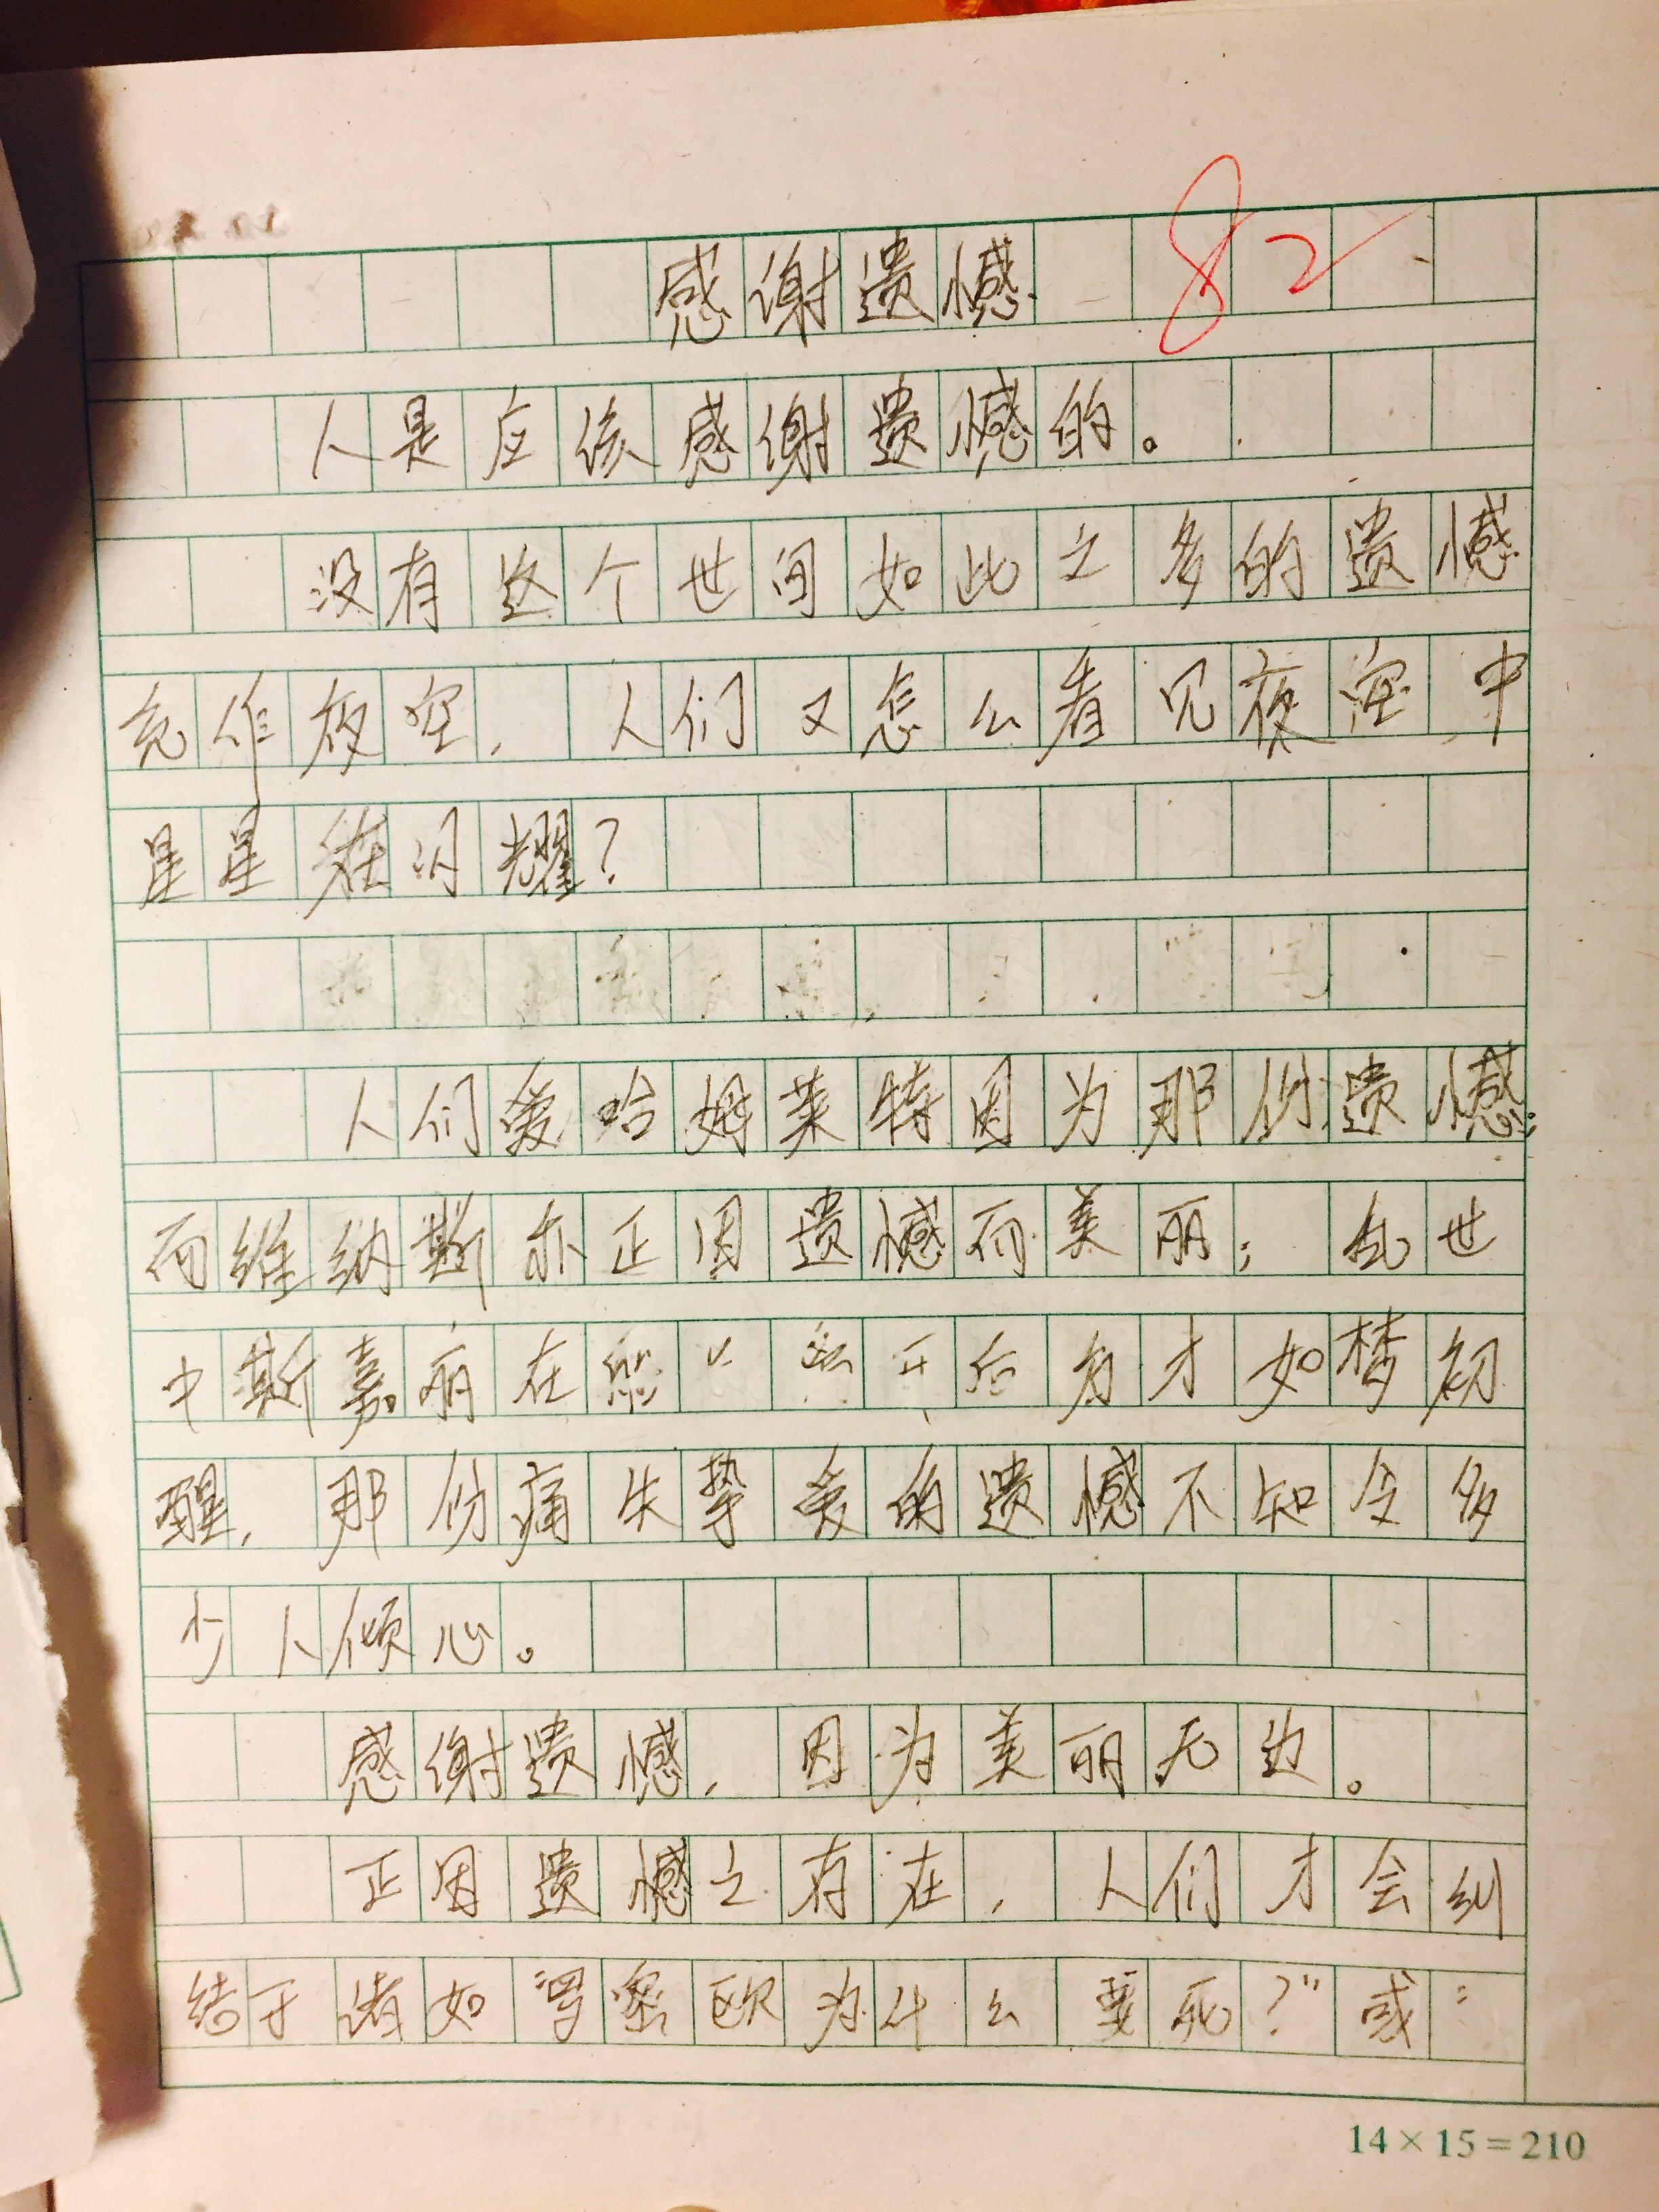 感谢遗憾
82
人是应该感谢遗憾的。
没有这个世间如此之多的遗憾
充作夜空，人们又怎么看见夜空中
星星在闪耀？
人们爱哈姆莱特因为那份遗憾；
而维纳斯亦正因遗憾而美丽；乱世
中斯嘉丽在后方才如梦初
醒，那份痛失挚爱的遗憾不知令多
少人倾心。
感谢遗憾，因为美丽无边。
正因遗憾之存在，人们才会纠
结于诸如“罗密欧为什么要死？”或“
14×15=210